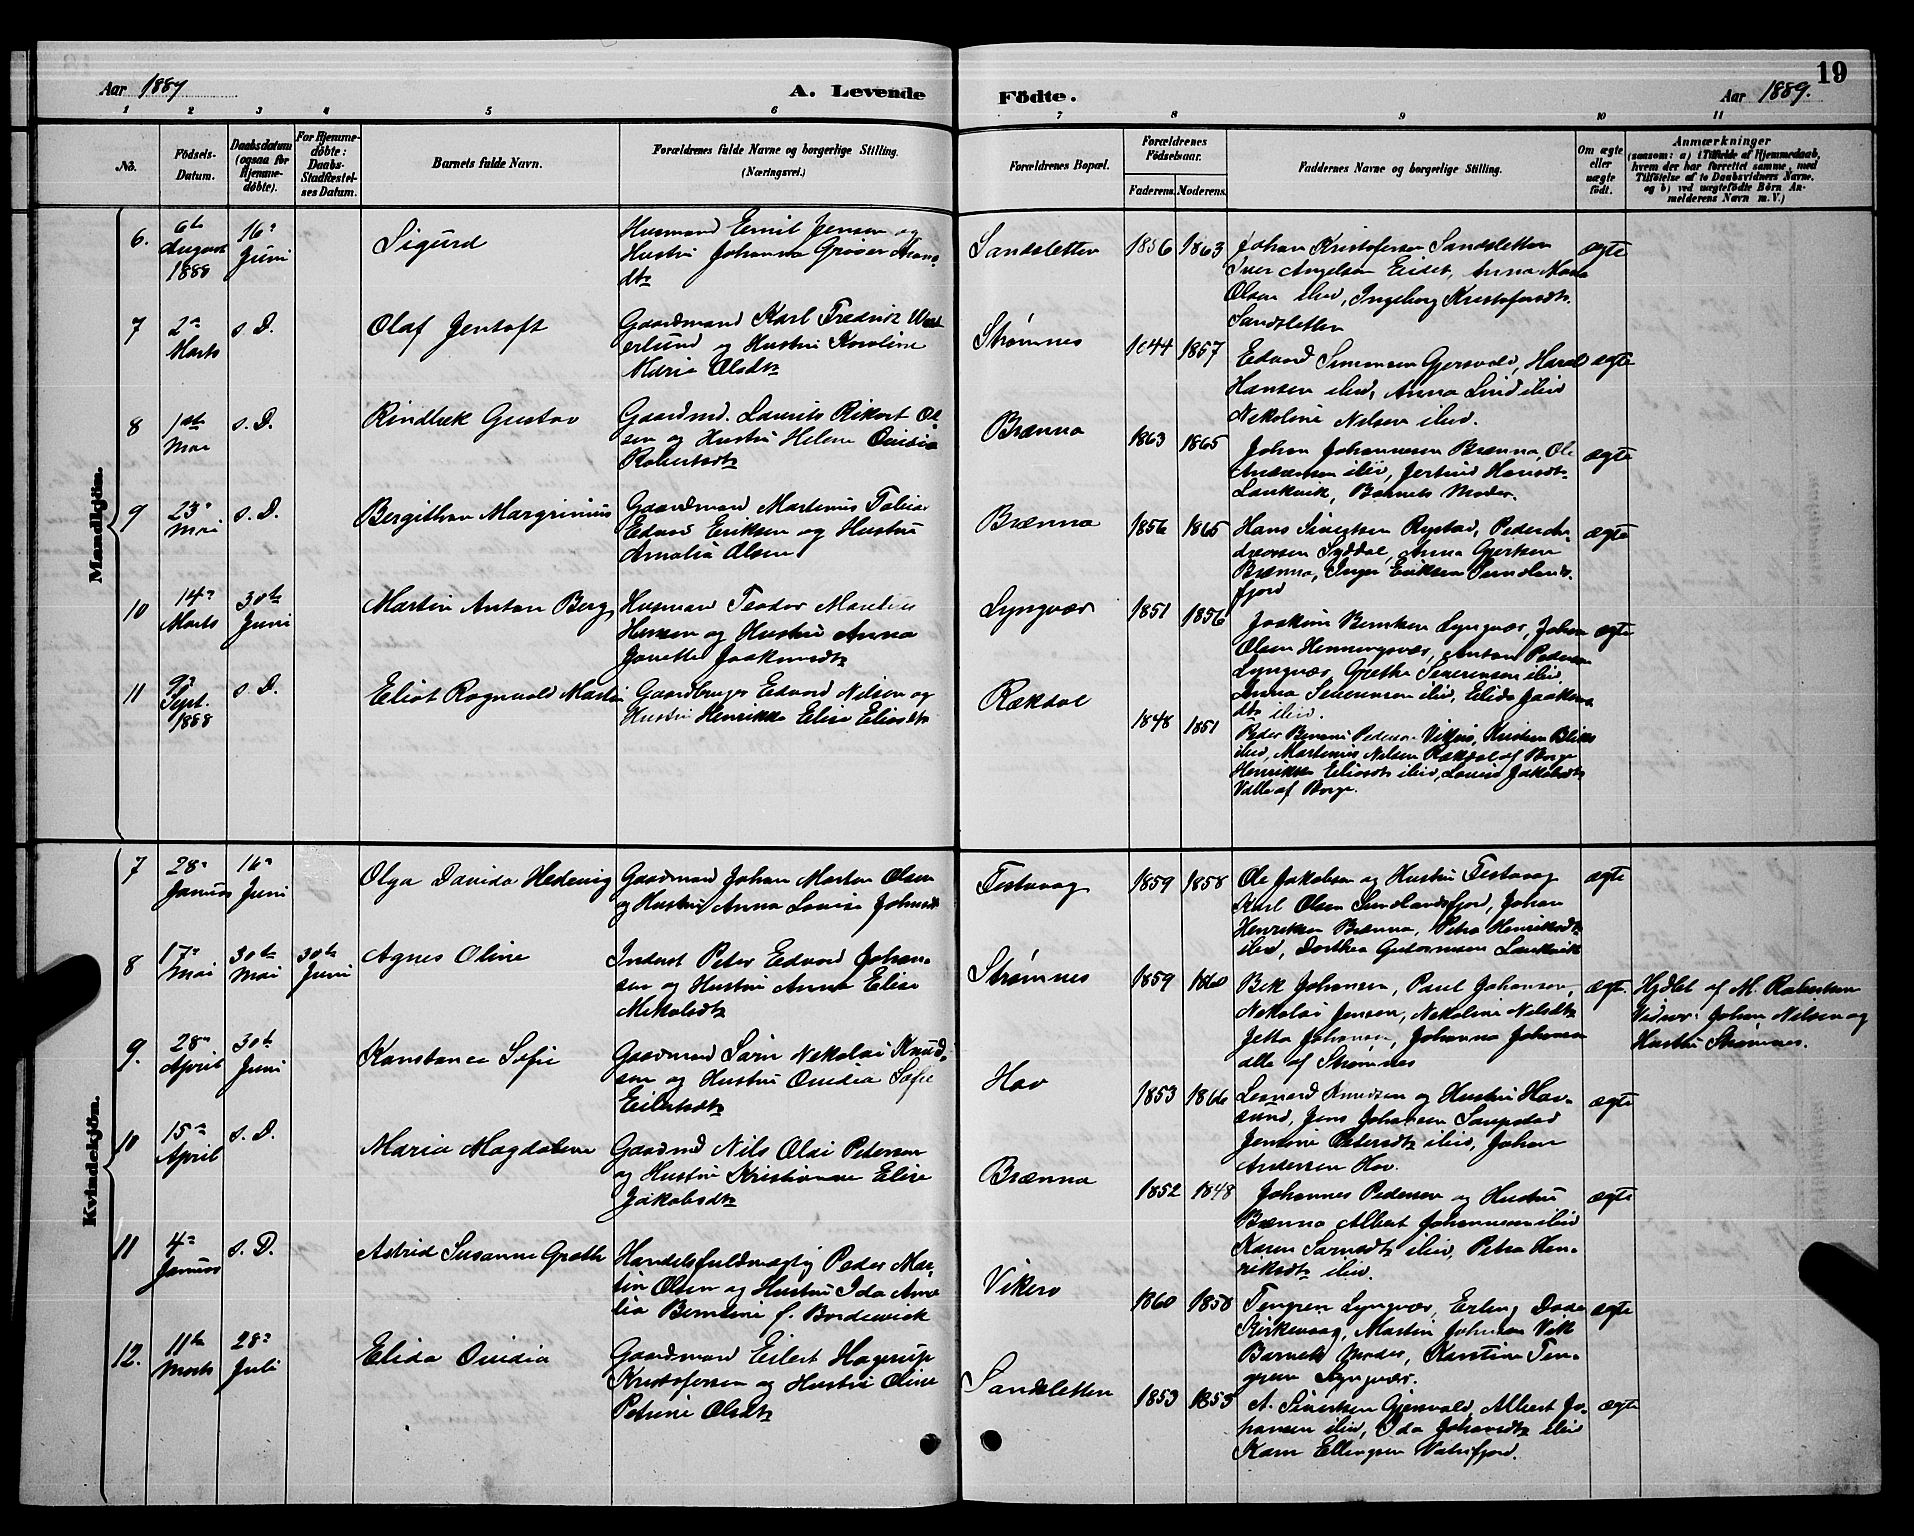 19
Aar 1889
A. Levende Födte.
Aar 1889.
1 2 3 4 5 6 7 8 9 10 11
No.
Födsels-Datum.
Daabsdatum (ogsaa for Hjemmedöbte).
For Hjemmedöbte: Daabs-Stadfæstelses Datum.
Barnets fulde Navn.
Forældrenes fulde Navne og borgerlige Stilling. (Næringsvei.)
Forældrenes Bopæl.
Forældrenes Födselsaar.
Faderens. Moderens.
Faddernes Navne og borgerlige Stilling.
Om ægte eller uægte födt.
Anmærkninger
(saasom: a) i Tilfælde af Hjemmedaab,
hvem der har forrettet samme, med
Tilföielse af to Daabsvidners Navne,
og b) ved uægtefödte Börn An-
melderens Navn m. V.)
Mandkjön.
6. 6te August 1888
16de Juni
Sigurd
Husmand Emil Jensen og
Hustru Johanna
Sandsletten
1856 1863
Johan Kristofersen Sandsletten
Iver Angelsen Eidet, Anna Maria
Olsen ibid, Ingeborg Kristofersdtr
Sandsletten
ægte
7 2den Marts
s. D.
Olaf Jentoft
Gaardmand Karl Fredrik West
erlund og Hustru Karoline
Maria Olsdtr
Strømnes
1844 1857
Edvard Simonsen Gjersvold, Harald
Hansen ibid, Anna Lind ibid
Nekoline Nilsen ibid.
ægte
8 1ste Mai
s. D.
Rindbæk Gustav
Gaardmd. Laurits Rikart Ol
sen og Hustru Helene Ovidia
Robertsdtr
Brænna
1863 1865
Johan Johannesen Brænna, Ole
Andersen ibid, Jertrud Hansdtr
Laukvik, Barnets Moder.
ægte
9 23de Mai
s. D.
Bergithon Margrinius
Gaardmand Martinus Tobias
Edvard Eriksen og Hustru
Amalia Olsen
Brænna
1856 1865
Hans Sivertsen Rystad, Peder An-
dreassen Syddal, Anna Gjertsen
Brænna, Inger Eriksen Sundlands-
fjord
ægte
10 14de Marts
30te Juni
Martin Anton Berg
Husmand Teodor Martin
Hansen og Hustru Anna
Janette Joakimsdtr
Lyngvær
1851 1856
Joakim Berntsen Lyngvær, Johan
Olsen Henningsvær, Anton Pedersen
Lyngvær, Grethe Severinsen ibid,
Anna Severinsen ibid, Elida Joakims
dtr ibid.
ægte
11 9de Sept. 1888
s. D.
Eliot Ragnvald Martin
Gaardbruger Edvard Nilsen og
Hustru Henrikke Elise Eliasdtr
Rækdal
1848 1851
Peder Benoni Pedersen Vikerø, Kristen Bliks
ibid, Martinus Nilsen Rækdal af Borge
Henrikke Eliasdtr ibid, Lovise Jakobsdtr
Valle af Borge.
Kvindekjön.
7 28de Januar
16de Juni
Olga Davida Hedevig
Gaardmand Johan Morten Olsen
og Hustru Anna Lovise Johnsdtr
Festvaag
1859 1858
Ole Jakobsen og Hustru Festvaag
Karl Olsen Sundlandsfjord, Johan
Henriksen Brænna, Petra Henriksdtr
ibid, Dorthea Guttormsen Laukvik
ægte
8 17de Mai
30te Mai
30te Juni
Agnes Oline
Inderst Peter Edvard Johan-
sen og Hustru Anna Elise
Mikalsdtr
Strømnes
1859 1860
Bek Johansen, Paul Johansen,
Nekolai Jensen, Nekoline Nilsdtr
Jetta Johansen, Johanna Johansen
alle af Strømnes
ægte.
Hjdbt af M. Robertsen
Vidner: Johan Nilsen og
Hustru Strømnes.
9. 28de April
30te Juni
Konstance Sofie
Gaardmand Sørn Nekolai Knud-
sen og Hustru Ovidia Sofie
Eilertsdtr
Hov
1853 1866
Leonard Knudsen og Hustru Hav-
sund, Jens Johansen Saupstad
Jensine Pedersdtr ibid, Johan
Andersen Hov.
ægte
10 15de April
s. D.
Maria Magdalena
Gaardmd Nils Olai Petersen
og Hustru Kristianne Elise
Jakobsdtr
Brænna
1852 1848
Johannes Pedersen og Hustru
Brænna Albert Johannesen ibid
Karen Sørnsdtr ibid, Petra Hen-
riksdtr ibid.
ægte
11 4de Januar
s. D.
Astrid Susanne Grøth
Handelsfuldmægtig Peder Mar-
tin Olsen og Hustru Ida Ama
lia Berntine f. Bordewick
Vikerø
1860 1858
Tengren Lyngvær, Erling Dada
Kirkevaag, Martin Johnsen Vik
Barnets Moder, Karstine Ten-
gren Lyngvær.
ægte
12. 11te Marts
28de Juli
Elida Ovidia
Gaardmand Eilert Hagerup
Kristofersen og Hustru Oline
Petrine Olsdtr
Sandsletten
1853 1855
A. Sivertsen Gjersvold, Albert Jo-
hansen ibid, Ida Johansdtr ibid
Karen Ellingsen Vatnfjord.
ægte